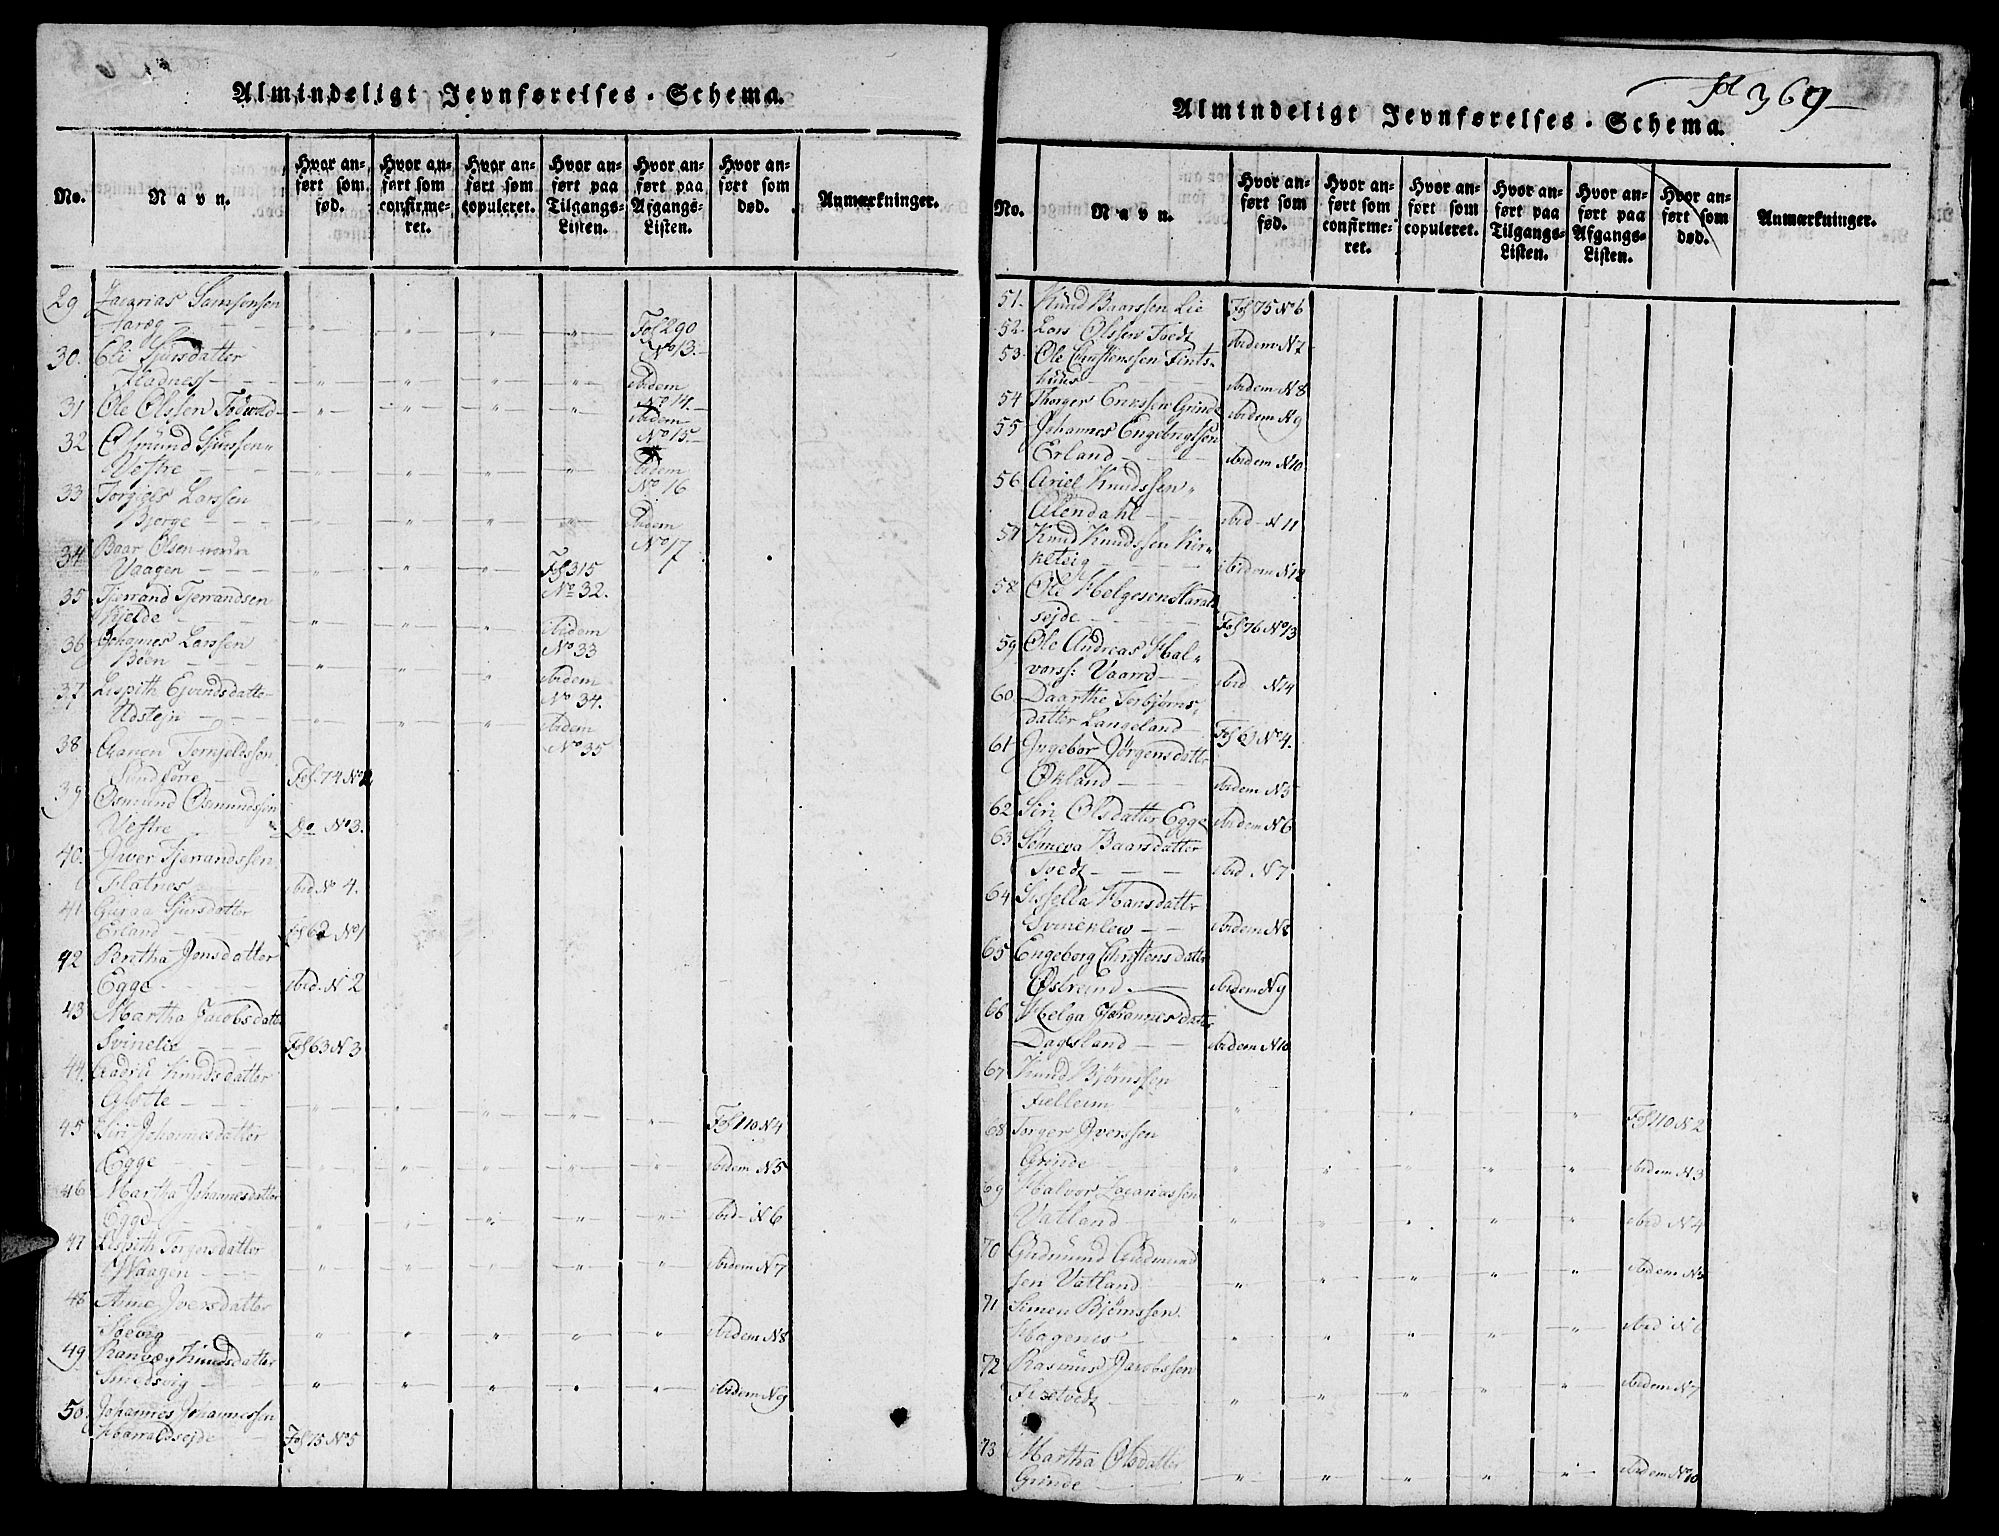 Almindeligt Jevnførelses-Schema.
No.
Navn.
Hvor an-
ført som
fød.
Hvor an-
ført som
confirme-
ret.
Hvor an-
ført som
copuleret.
Hvor an-
ført paa
Tilgangs-
Listen.
Hvor an-
ført paa
Afgangs-
Listen.
Hvor an-
ført som
død.
Anmærkninger.
29 Zacarias Samsonsen
Fol 290
No 13.
30. Eli Sjursdatter
Fladnes
ibidem
No 14.
31 Ole Olsen
ibidem
No 15.
32 Osmund Sjursen
Vestre
ibidem
No 16
33 Torgiers Larssen
Bjerge
ibidem
No 17
34 Baar Olsen nordre
Vaagen Fol 315
No 32.
35 Tjerrand Tjerrandsen
Kjelde ibidem
No 33
36 Johannes Larssen
Bøen ibidem
No 34.
37 Lispith Ejvindsdatter
Udstejn ibidem
No 35
38
Fol. 74 No 2
39 Osmund Osmundssen
Vestre Do No 3.
40. Iver Tjerrandssen
Flatnes ibid No 4.
41 Guraa Sjursdatter
Erland Fol 62 No 1
42 Bretha Jonsdatter
Egge ibid. N 2
43 Martha Jacobsdatter
Svinelie Fol 63 N 3
44. Knudsdatter
Fol 110 N 4
45 Siri Johannesdatter
Egge ibidem N 5
46 Martha Johannesdatter
Egge ibid N 6
47 Lispith Torgersdatter
Waagen ibidem N 7
48 Anne Iversdatter
ibidem N 8
49 Ranveg Knudsdatter
Smedsvig ibidem N 9
50. Johannes Johannessen
Harraldsejde Fol 75 No 5
Fol 369
Almindeligt Jevnførelses-Schema.
No.
Navn.
Hvor an-
ført som
fød.
Hvor an-
ført som
confirme-
ret.
Hvor an-
ført som
copuleret.
Hvor an-
ført paa
Tilgangs-
Listen.
Hvor an-
ført paa
Afgangs-
Listen.
Hvor an-
ført som
død.
Anmærkninger.
51. Knud Baarssen Lie Fol 75 No 6
52. Lars Olssen Tvedt ibidem N 7
53. Ole Christenssen Fints-
huus ibidem N 8
54 Thorger Erikssen Grinde ibidem N 9
55 Johannes Engebregtsen
Erland ibidem N 10
56 Ariel Knudssen
Alendahl ibid N 11
57 Knud Knudssen Kir-
ketejg ibidem N 12
58 Ole Helgesen Harald-
sejde Fol 76 No 13
59 Ole Andreas Hal-
vorss: ibid N 14
60 Daarthe Torbjørns-
datter Langeland Fol 63 No 4.
61 Ingebor Jørgensdatter
Økland ibidem N 5
62 Siri Olsdatter Egge ibidem N 6
63 Sønneva Baarsdatter
Tvedt ibid N 7
64 Sissella Hansdatter
ibidem N 8
65 Engeborg Christensdatter
ibidem N 9
66 Helga Johannesdatter
Dagsland ibidem N 10
67 Knud Bjørnssen
Fielleim Fol 110 N 2
68 Torger Iverssen
Grinde ibidem N 3
69 Halvor Zacariassen
Vatland ibid N 4
70 Gudmund Gudmund
sen Vatland ibidem N 5
71 Simen Bjørnssen
Hagenes ibid N 6
72 Rasmus Jacobssen
ibidem N 7
73 Martha Olsdatter
Grinde ibidem No 10